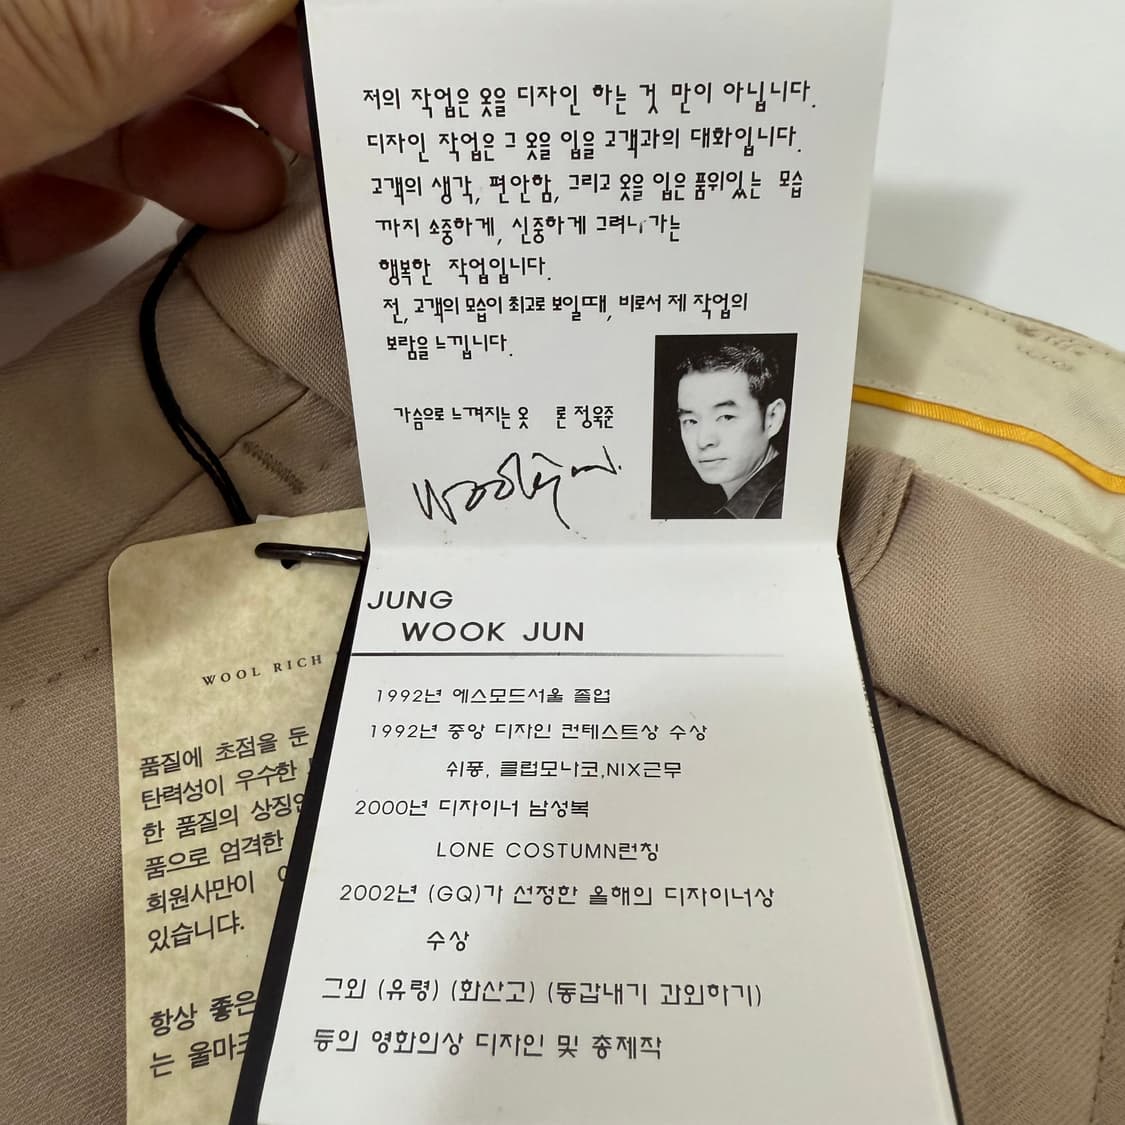 저의 작업은 옷을 디자인 하는 것 만이 아닙니다.
디자인 작업은 그 옷을 입을 고객과의 대화입니다.
고객의 생각, 편안함, 그리고 옷을 입은 품위있는 모습
까지 소중하게, 신중하게 그려나가는
행복한 작업입니다.
전, 고객의 모습이 최고로 보일때, 비로서 제 작업의
보람을 느낍니다.
가슴으로 느껴지는 옷 론 정욱준
JUNG
WOOK JUN
1992년 에스모드서울 졸업
1992년 중앙 디자인 컨테스트상 수상
쉬퐁, 클럽모나코,NIX근무
2000년 디자이너 남성복
LONE COSTUMN런칭
2002년 (GQ)가 선정한 올해의 디자이너상
수상
그외 (유령) (화산고) (동갑내기 과외하기)
등의 영화의상 디자인 및 총제작
WOOL RICH
품질에 초점을 둔
탄력성이 우수한
한 품질의 상징인
품으로 엄격한
회원사만이
있습니다.
항상 좋은
는 울마크